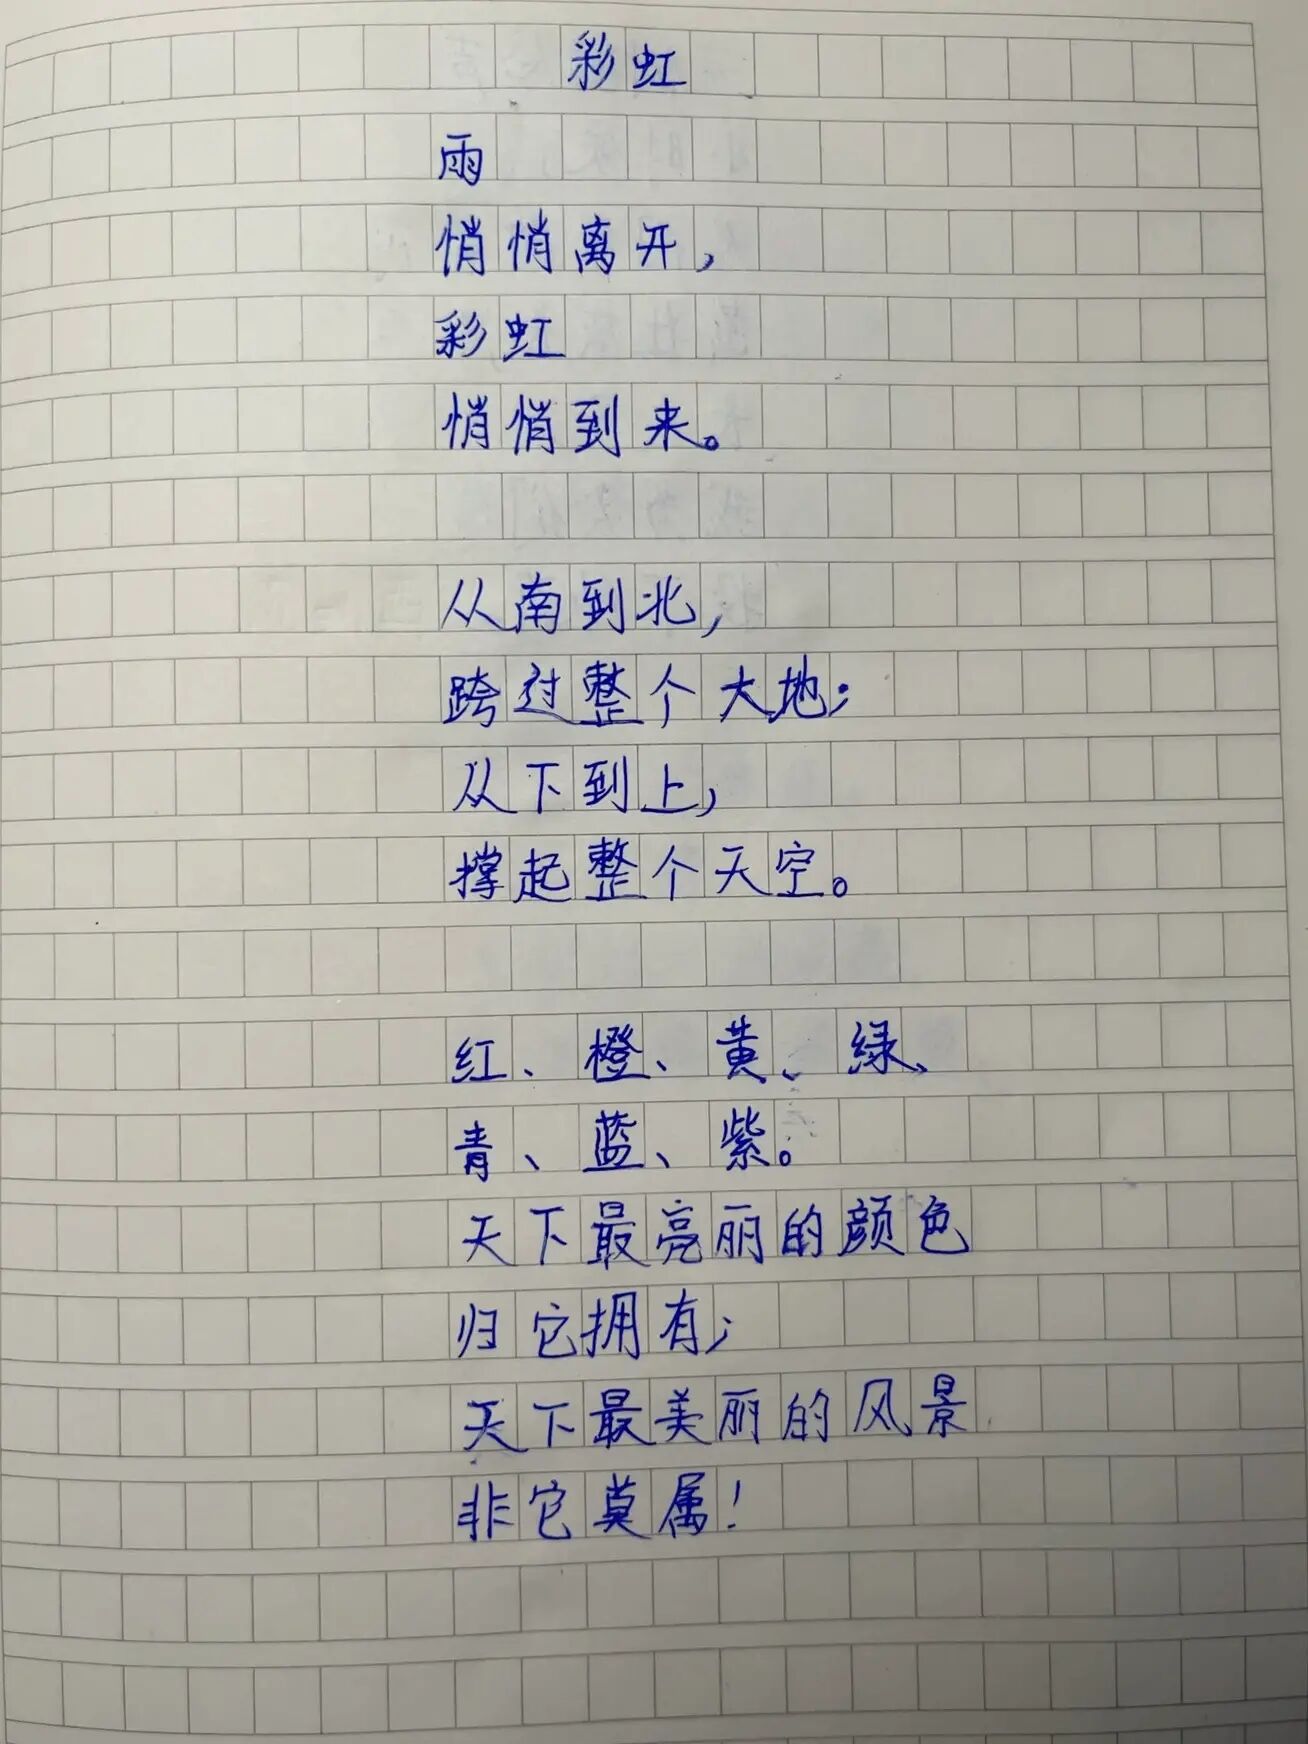 彩虹
雨
悄悄离开，
彩虹
悄悄到来。
从南到北，
跨过整个大地；
从下到上，
撑起整个天空。
红、橙、黄、绿、
青、蓝、紫。
天下最亮丽的颜色
归它拥有；
天下最美丽的风景
非它莫属！